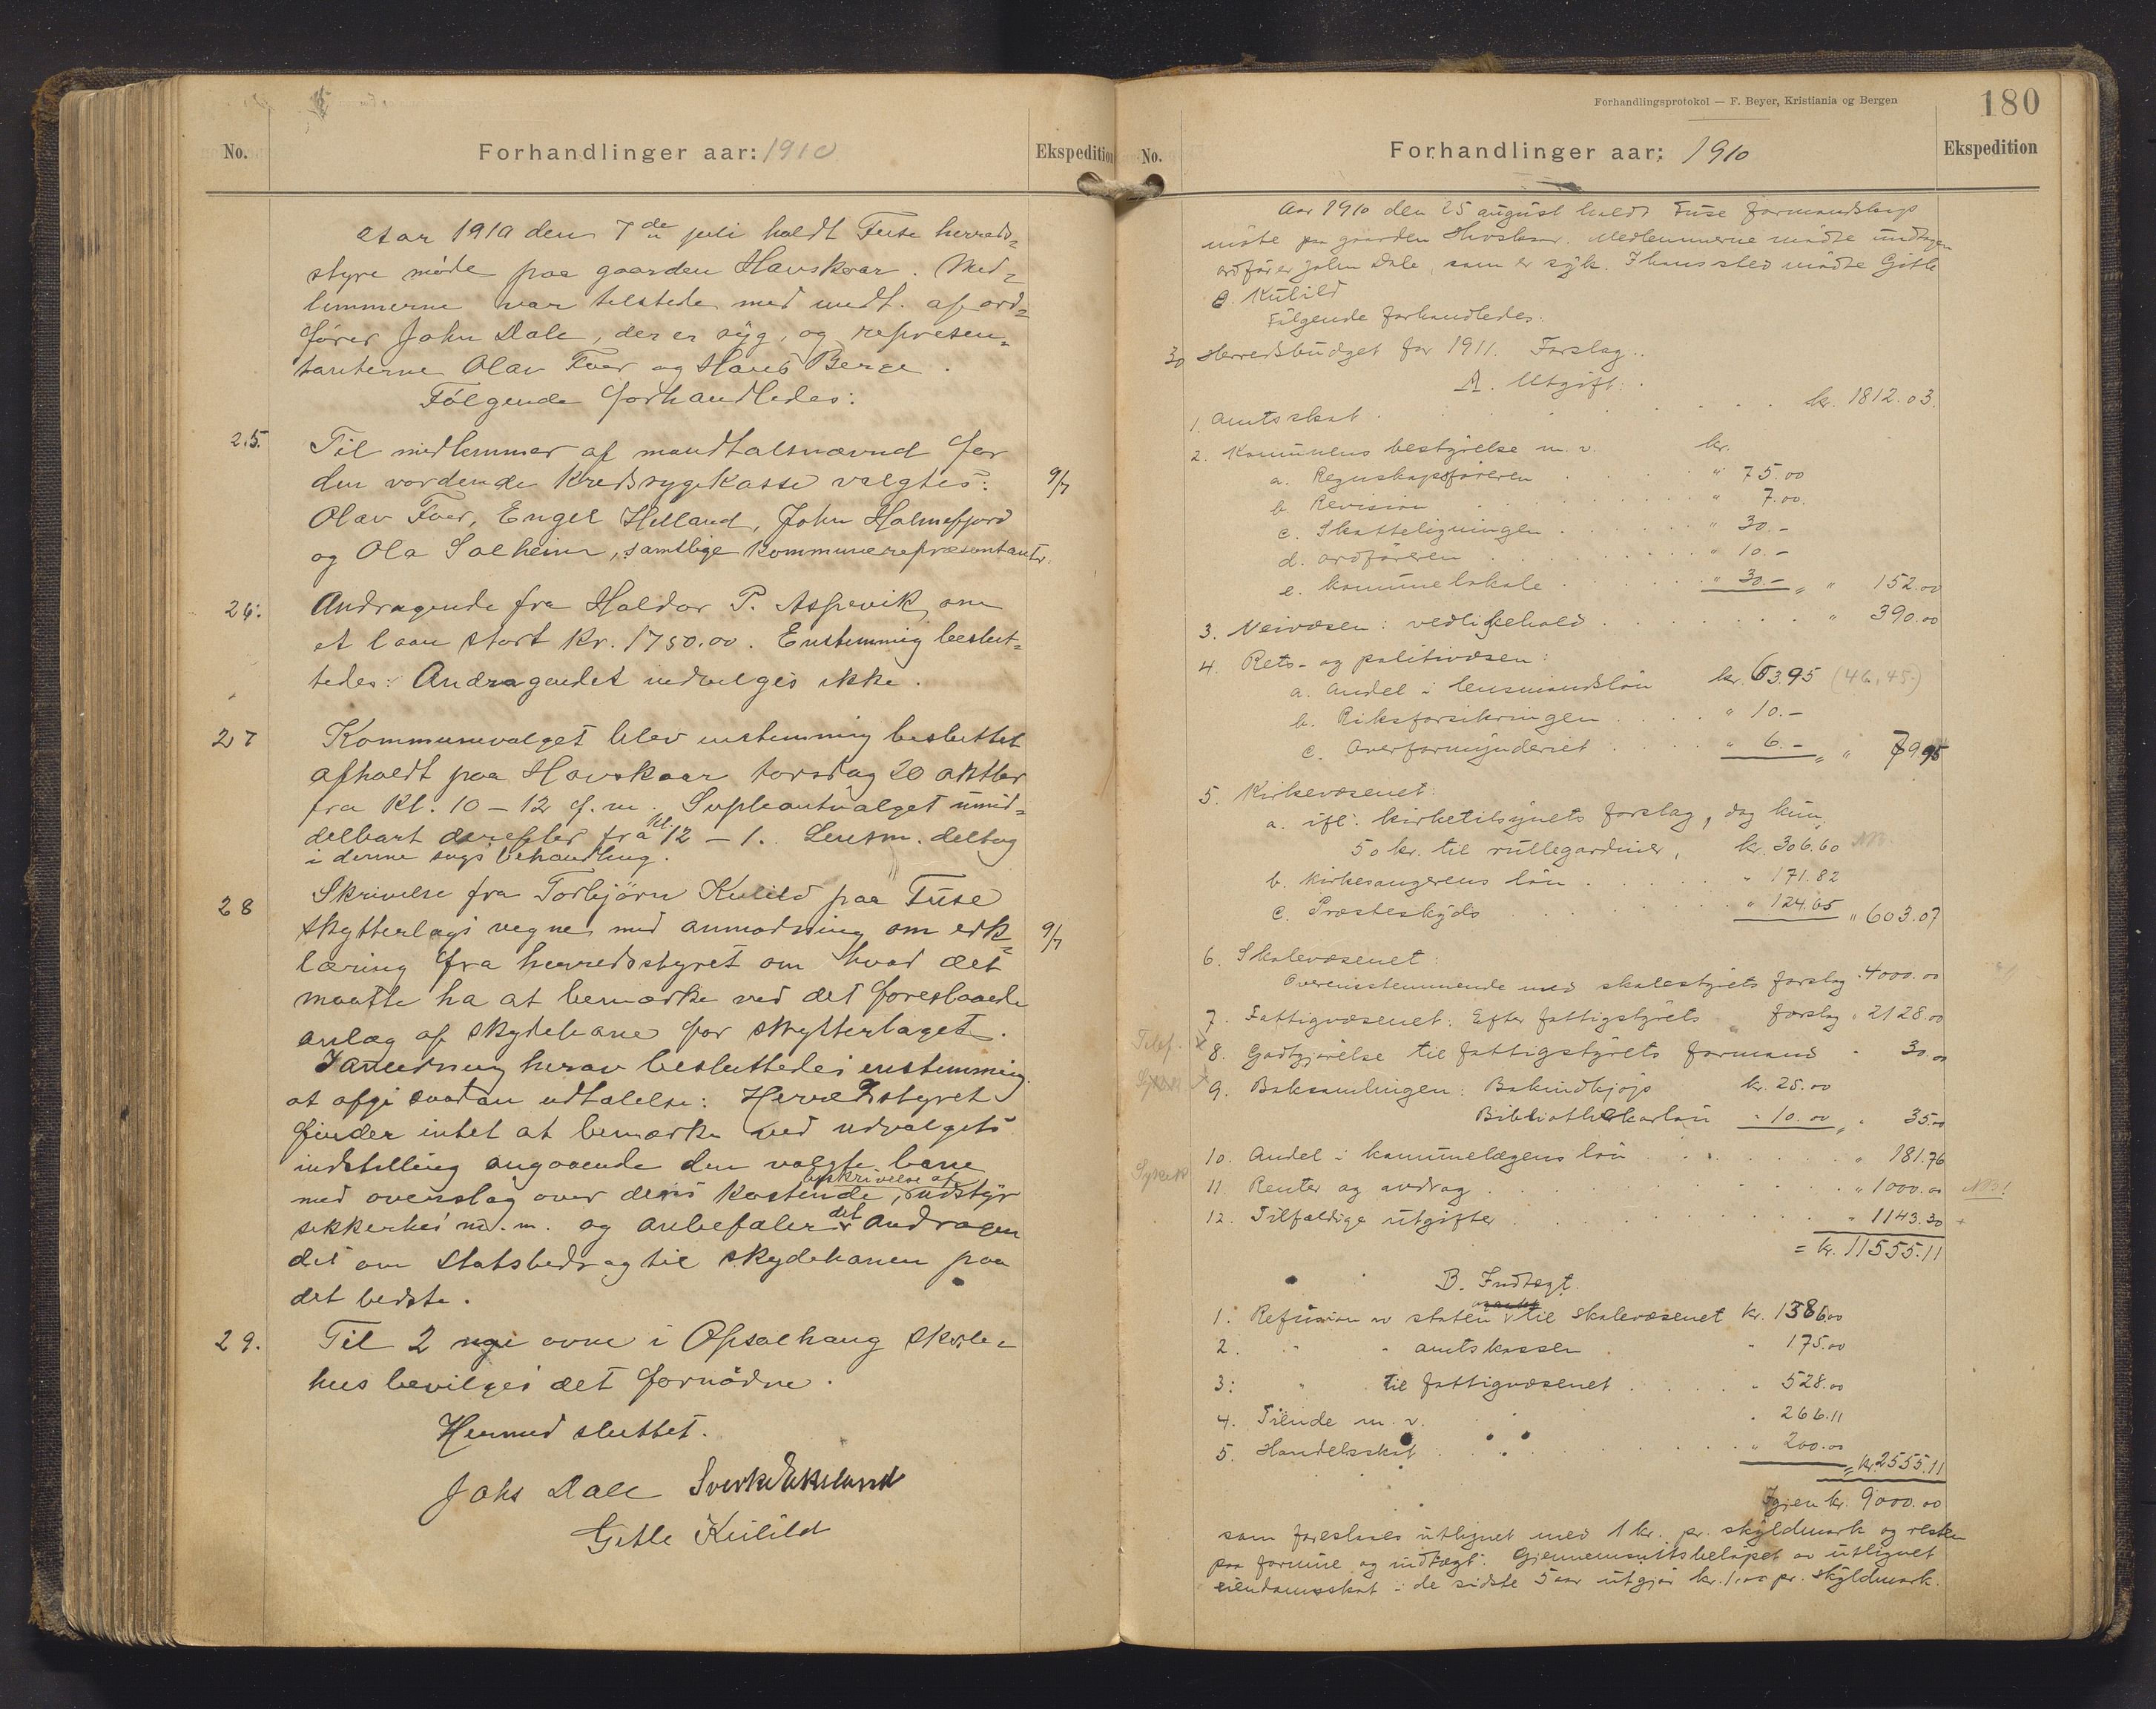 No.
Forhandlinger aar: 1910
Ekspedition
Aar 1910 den 7de juli holdt Fuse herreds=
styre møde paa gaarden Havskaar. Med=
lemmerne var tilstede med undt. af ord=
fører John Dale, der er syg, og represen=
tanterne Olav Tvær og Hans Berge.
Følgende forhandledes:
25. Til medlemmer af mandtalsnævnd for
den vordende Kredssygekasse valgtes: 9/7
Olav Tvær, Engel Helland, John Holmefjord
og Ola Solheim, samtlige kommunerepræsentanter.
26. Andragende fra Haldor P. Aspevik om
et laan stort Kr. 1750.00. Enstemmig beslut=
tedes: Andragendet indvelges ikke.
27 Kommunevalget blev enstemmig besluttet
afholdt paa Havskaar torsdag 20 oktbr
fra Kl. 10 – 12 f.m. Supleantvalget umid=
delbart derefter fra kl. 12 – 1. Lensm. deltog
i denne sags behandling.
28 Skrivelse fra Torbjørn Kulild paa Fuse
skytterlags vegne med anmodning om erk= 9/7
læring fra herredsstyret om hvad det
maatte ha at bemærke ved det foreslaaede
anlæg af skydebane for skytterlaget.
I anledning herav besluttedes enstemmig
at afgi saadan udtalelse: Herredsstyret
finder intet at bemærke ved udvalgets
indstilling angaaende den valgte bane
med overslag over dens kostende, beskrivelse af udstyr
sikkerhei m.m. og anbefaler det andragen
det om Statsbedrag til skydebanen paa
det bedste.
29. Til 2 nye ovne i Opsalhaug skole=
hus bevilges det fornødne.
Hermed sluttet.
Johs Dale Sverke Eikeland
Gitle Kulild
Forhandlingsprotokol — F. Beyer, Kristiania og Bergen
180
No.
Forhandlinger aar: 1910
Ekspedition
Aar 1910 den 25 august holdt Fuse formandskap
møte paa gaarden Havskaar. Medlemmerne mødte undtagen
ordfører John Dale, som er syk. I hans sted mødte Gitle
O. Kulild
Følgende forhandledes:
30 Herredsbudget for 1911. Forslag..
A. Utgift:
1. Amtsskat . . . . kr. 1812.03.
2. Kommunens bestyrelse m. v. kr.
a. Regnskapsføreren . . " 75.00
b. Revision . . . " 7.00.
c. Skatteligningen . . . " 30.–
d. ordføreren . . . " 10.–
e. kommunelokale . . . " 30.– " " 152.00
3. Veivæsen: vedlikehold . . . " 390.00
4. Rets- og politivæsen:
a. Andel i lensmandsløn kr. 63.95 (46,45)
b. Riksforsikringen . . " 10.–
c. Overformynderiet . . " 6.– " " 79.95
5. Kirkevæsenet:
a. ifl. kirketilsynets forslag, dog kun
50 kr. til rullegardiner, kr. 306.60 NB.
b. Kirkesangerens løn . . " 171.82
c. Præsteskyds . . " 124.65 " 603.07
6. Skolevæsenet:
Overensstemmende med skolestyrets forslag " 4000.00
7. Fattigvæsenet: Efter fattigstyrets forslag " 2128.00
Telef. 8. Godtgjørelse til fattigstyrets formand " 30.00
9. Boksamlingen: Bokindkjøp kr. 25.00
Bibliothekarløn " 10.00 " " 35.00
10. Andel i kommunelægens løn . . . " 181.76
Sykek 11. Renter og avdrag . . . " 1000.00 NB!
12. Tilfældige utgifter . . . " 1143.30 +
= kr. 11555.11
B. Indtægt.
1. Refusion av staten til Skolevæsenet kr. 1386.00
2. " " amtskassen " 175.00
3. " til fattigvæsenet . . " 528.00
4. Tiende m. v. . " 266.11
5. Handelsskat . . " 200.00
= kr. 2555.11
Igjen kr. 9000.00
som foreslaaes utlignet med 1 kr. pr. skyldmark og resten
paa formue og indtægt. Gjennemsnitsbeløpet av utlignet
eiendomsskat i de sidste 5 aar utgjør kr. 1,00 pr. skyldmark.